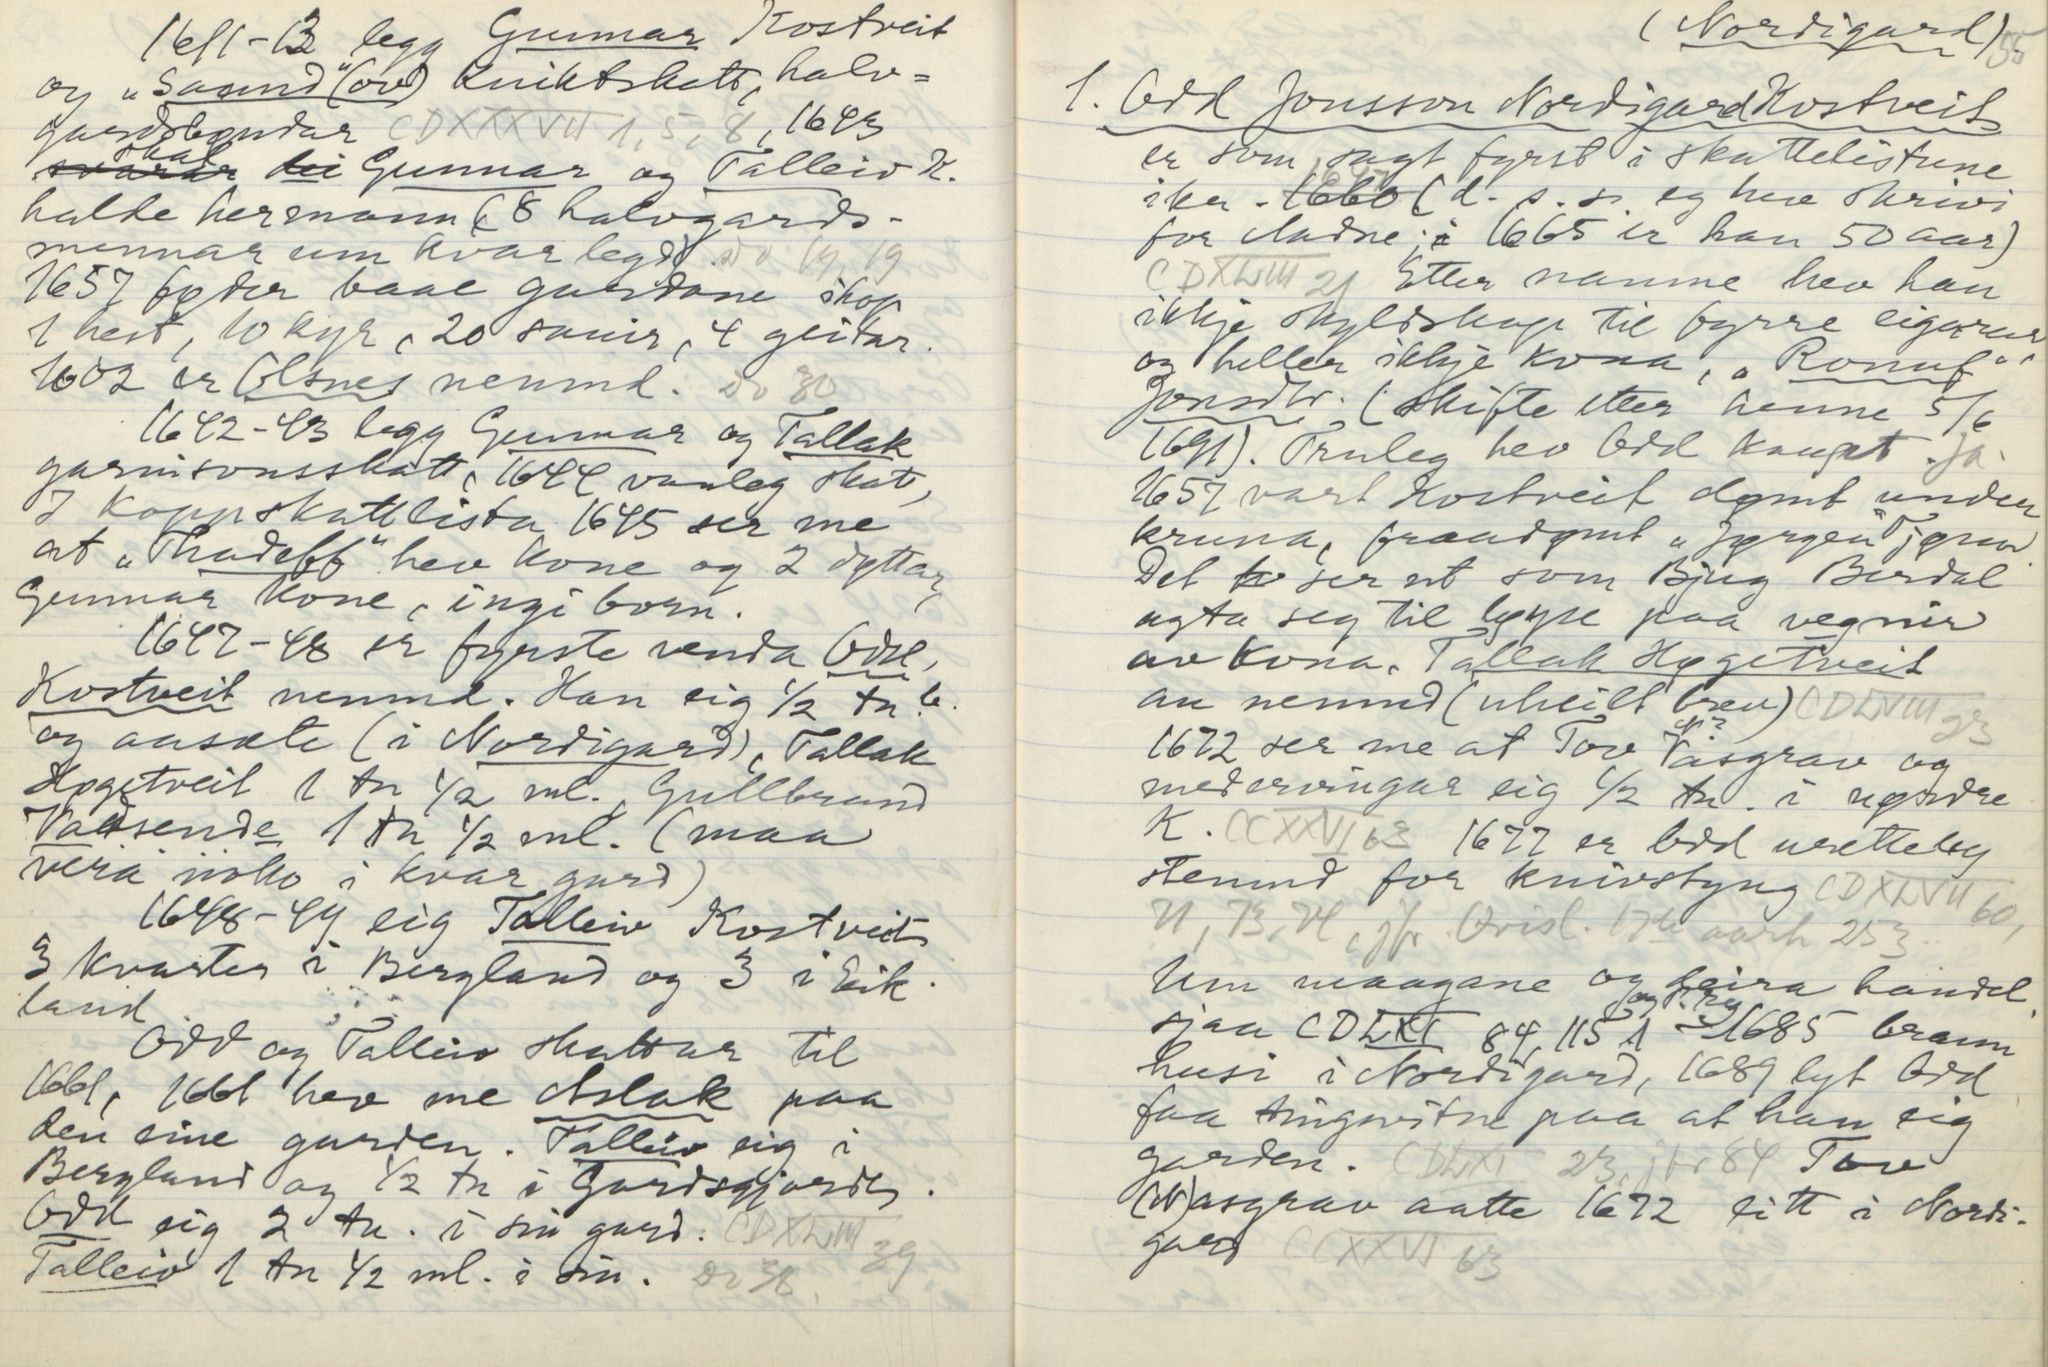 1611-13 legg Gunnar Kostveit
og „Saamd" (ov) Kniktskatt, halv=
gardsbøndar CDXXXVII 1, 5, 8, 1643
skal
svarar dei Gunnar og Talleiv K.
halde hermann (8 halvgards-
mennar um kvar legd). Do 19, 19
1657 føder baae gardane ihop
1 hest, 10 kyr, 20 sauir, 4 geitar.
1602 er Olsnes nemnd. Do 30
1642-43 legg Gunnar og Tallak
garnisonsskatt, 1644 vanleg skatt,
I Koppskattlista 1645 ser me
at „Thadeff" hev kone og 2 dyttar,
Gunnar kone, ingi born.
1647-48 er fyrste venda Odd
Kostveit nemnd. Han eig 1/2 tn. b.
og ansæte (i Nordigard), Tallak
Høgetveit 1 tn 1/2 ml., Gullbrand
Vadsende 1 tn 1/2 ml. (maa
vera noko i kvar gard)
1648-49 eig Talleiv Kostveit
3 kvarter i Bergland og 3 i Eik-
land
Odd og Talleiv skattar til
1661, 1661 hev me Aslak paa
den eine garden. Talleiv eig i
Bergland og 1/2 tn i Gardsgjordes.
Odd eig 2 tn. i sin gard. CDXLVIII 39
Talleiv 1 tn 1/2 ml. i sin. Do 38.
(Nordigard) 55
1. Odd Jonsson Nordigard Kostveit
er som sagt fyrst i skattelistune
1647
ikr. 1660 (d. s. s. eg hev skrivi
for Aadne; i 1665 er han 50 aar)
CDXLVIII 21 Etter namne hev han
ikkje skyldskap til fyrre eigarar
og heller ikkje kona, „Ronuf"
Jonsdtr. (skifte etter henne 5/6
1691). Truleg hev Odd kaupt. Ja.
1657 vart Kostveit dømt under
kruna, fraadømt „Jørgen Tjønn
Det ser ut som Bjug Berdal
agta seg til løyse paa vegnir
av kona. Tallak Høgetveit
au nemnd (uheilt brev) CDLVIII 23
1672 ser me at Tov Vasgrav og
medervingar eig 1/2 tn. i nørdre
K. CCXXVI 63 1677 er Odd uretteleg
stemnd for knivstyng CDXLVII 60,
71, 73, 74, jfr. Kvisl. 17de aarh 253
Um maagane og deira handel
sjaa CDLXI 84, 115 1685 brann
husi i Nordigard, 1689 lyt Odd
faa tingsvitne paa at han eig
garden. CDLXI 23, jfr 84 Tov
(N)asgrav aatte 1672 litt i Nordi-
gard CCXXVI 63